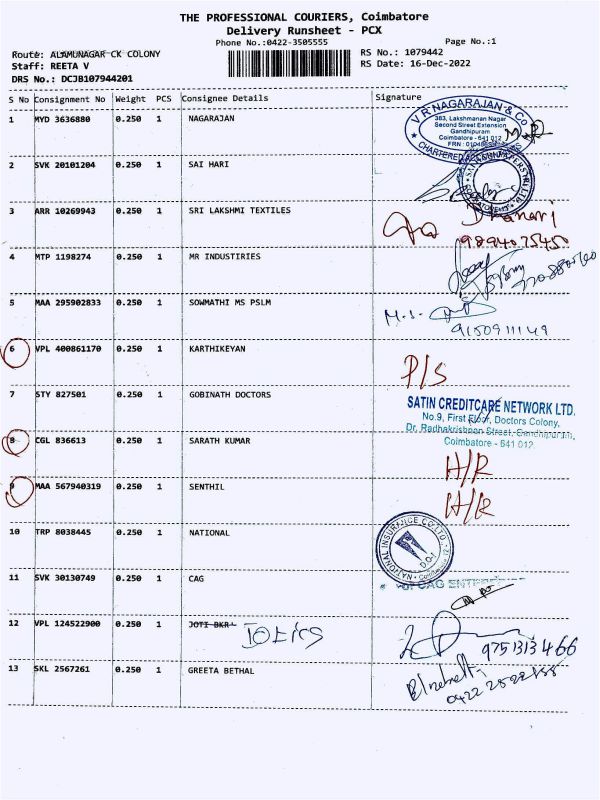 THE PROFESSIONAL COURIERS, Coimbatore
Delivery Runsheet - PCX
Phone No.:0422-3505555 Page No.:1
Route: ALAMUNAGAR-CK COLONY RS No.: 1079442
Staff: REETA V RS Date: 16-Dec-2022
DRS No.: DCJB107944201
S No Consignment No Weight PCS Consignee Details Signature
1 MYD 3636880 0.250 1 NAGARAJAN
V R NAGARAJAN & Co
383, Lakshmanan Nagar
Second Street Extension
Gandhipuram
Coimbatore - 641 012
2 SVK 20101204 0.250 1 SAI HARI
3 ARR 10269943 0.250 1 SRI LAKSHMI TEXTILES
9894075450
4 MTP 1198274 0.250 1 MR INDUSTIRIES
5 MAA 295902833 0.250 1 SOWMATHI MS PSLM
9150911149
6 VPL 400861170 0.250 1 KARTHIKEYAN P/S
7 STY 827501 0.250 1 GOBINATH DOCTORS
SATIN CREDITCARE NETWORK LTD.
No.9, First Floor, Doctors Colony,
Dr. Radhakrishnan Street, Gandhipuram,
Coimbatore - 641 012
8 CGL 836613 0.250 1 SARATH KUMAR H/R
9 MAA 567940319 0.250 1 SENTHIL H/R
10 TRP 8038445 0.250 1 NATIONAL
NATIONAL INSURANCE CO LTD.
11 SVK 30130749 0.250 1 CAG
12 VPL 124522900 0.250 1 JOTI BKR
9751313466
13 SKL 2567261 0.250 1 GREETA BETHAL